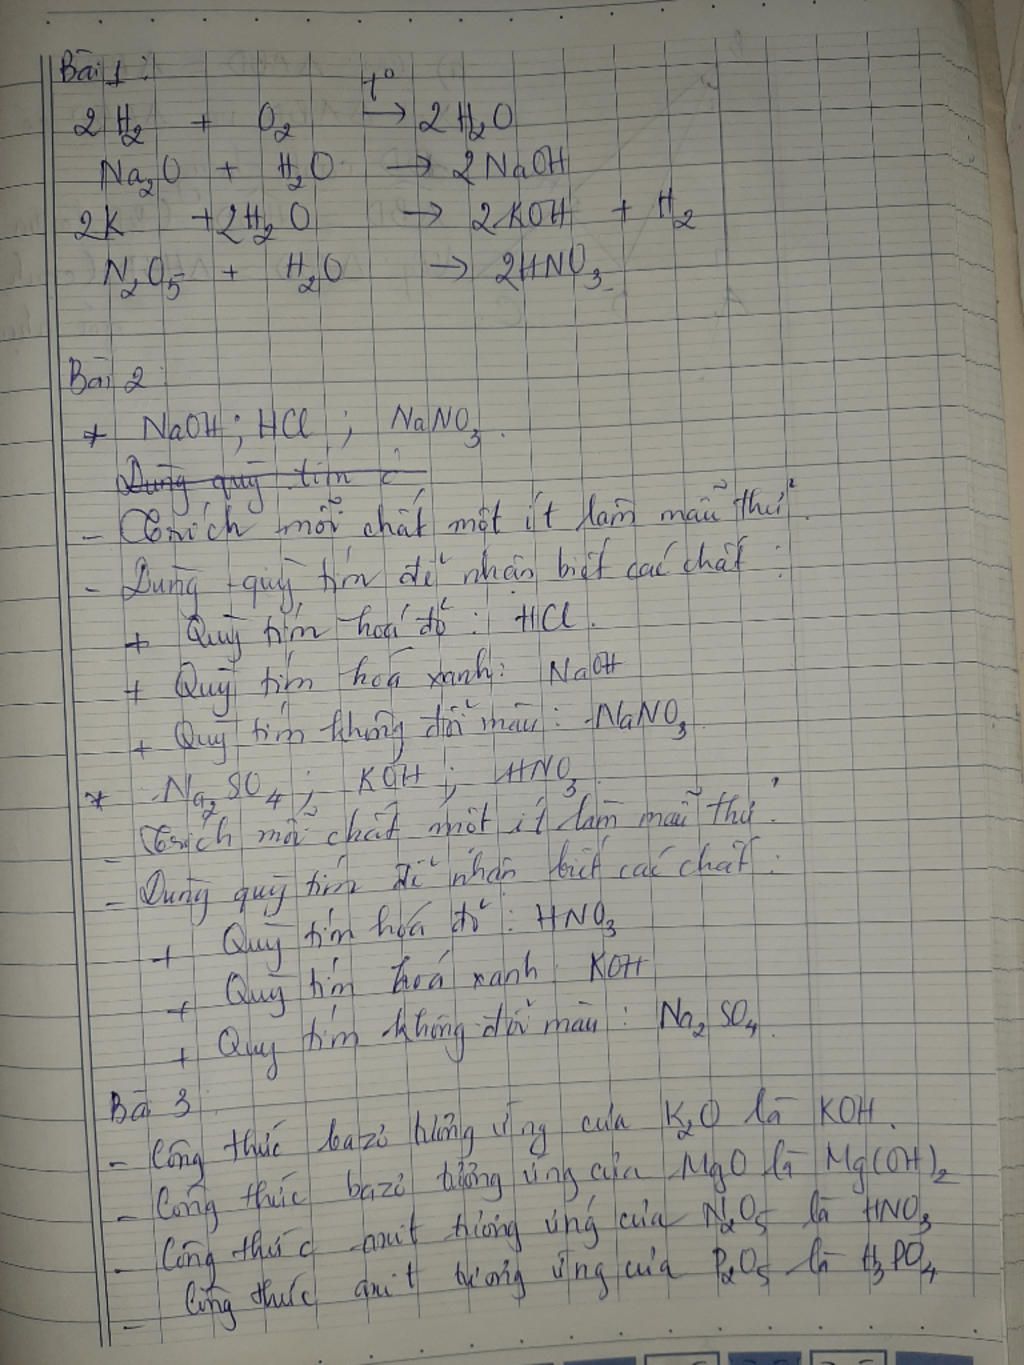 Bài 1:
2H₂ + O₂ t° → 2H₂O
Na₂O + H₂O → 2NaOH
2K + 2H₂O → 2KOH + H₂
N₂O₅ + H₂O → 2HNO₃
Bài 2
* NaOH; HCl; NaNO₃.
Dùng quỳ tím
- Trích mỗi chất một ít làm mẫu thử.
- Dùng quỳ tím để nhận biết các chất:
+ Quỳ tím hoá đỏ: HCl.
+ Quỳ tím hoá xanh: NaOH
+ Quỳ tím không đổi màu: NaNO₃.
* Na₂SO₄; KOH; HNO₃.
- Trích mỗi chất một ít làm mẫu thử.
- Dùng quỳ tím để nhận biết các chất:
+ Quỳ tím hoá đỏ: HNO₃
+ Quỳ tím hoá xanh KOH
+ Quỳ tím không đổi màu: Na₂SO₄.
Bài 3
- Công thức bazơ tương ứng của K₂O là KOH.
- Công thức bazơ tương ứng của MgO là Mg(OH)₂
- Công thức axit tương ứng của N₂O₅ là HNO₃
- Công thức axit tương ứng của P₂O₅ là H₃PO₄